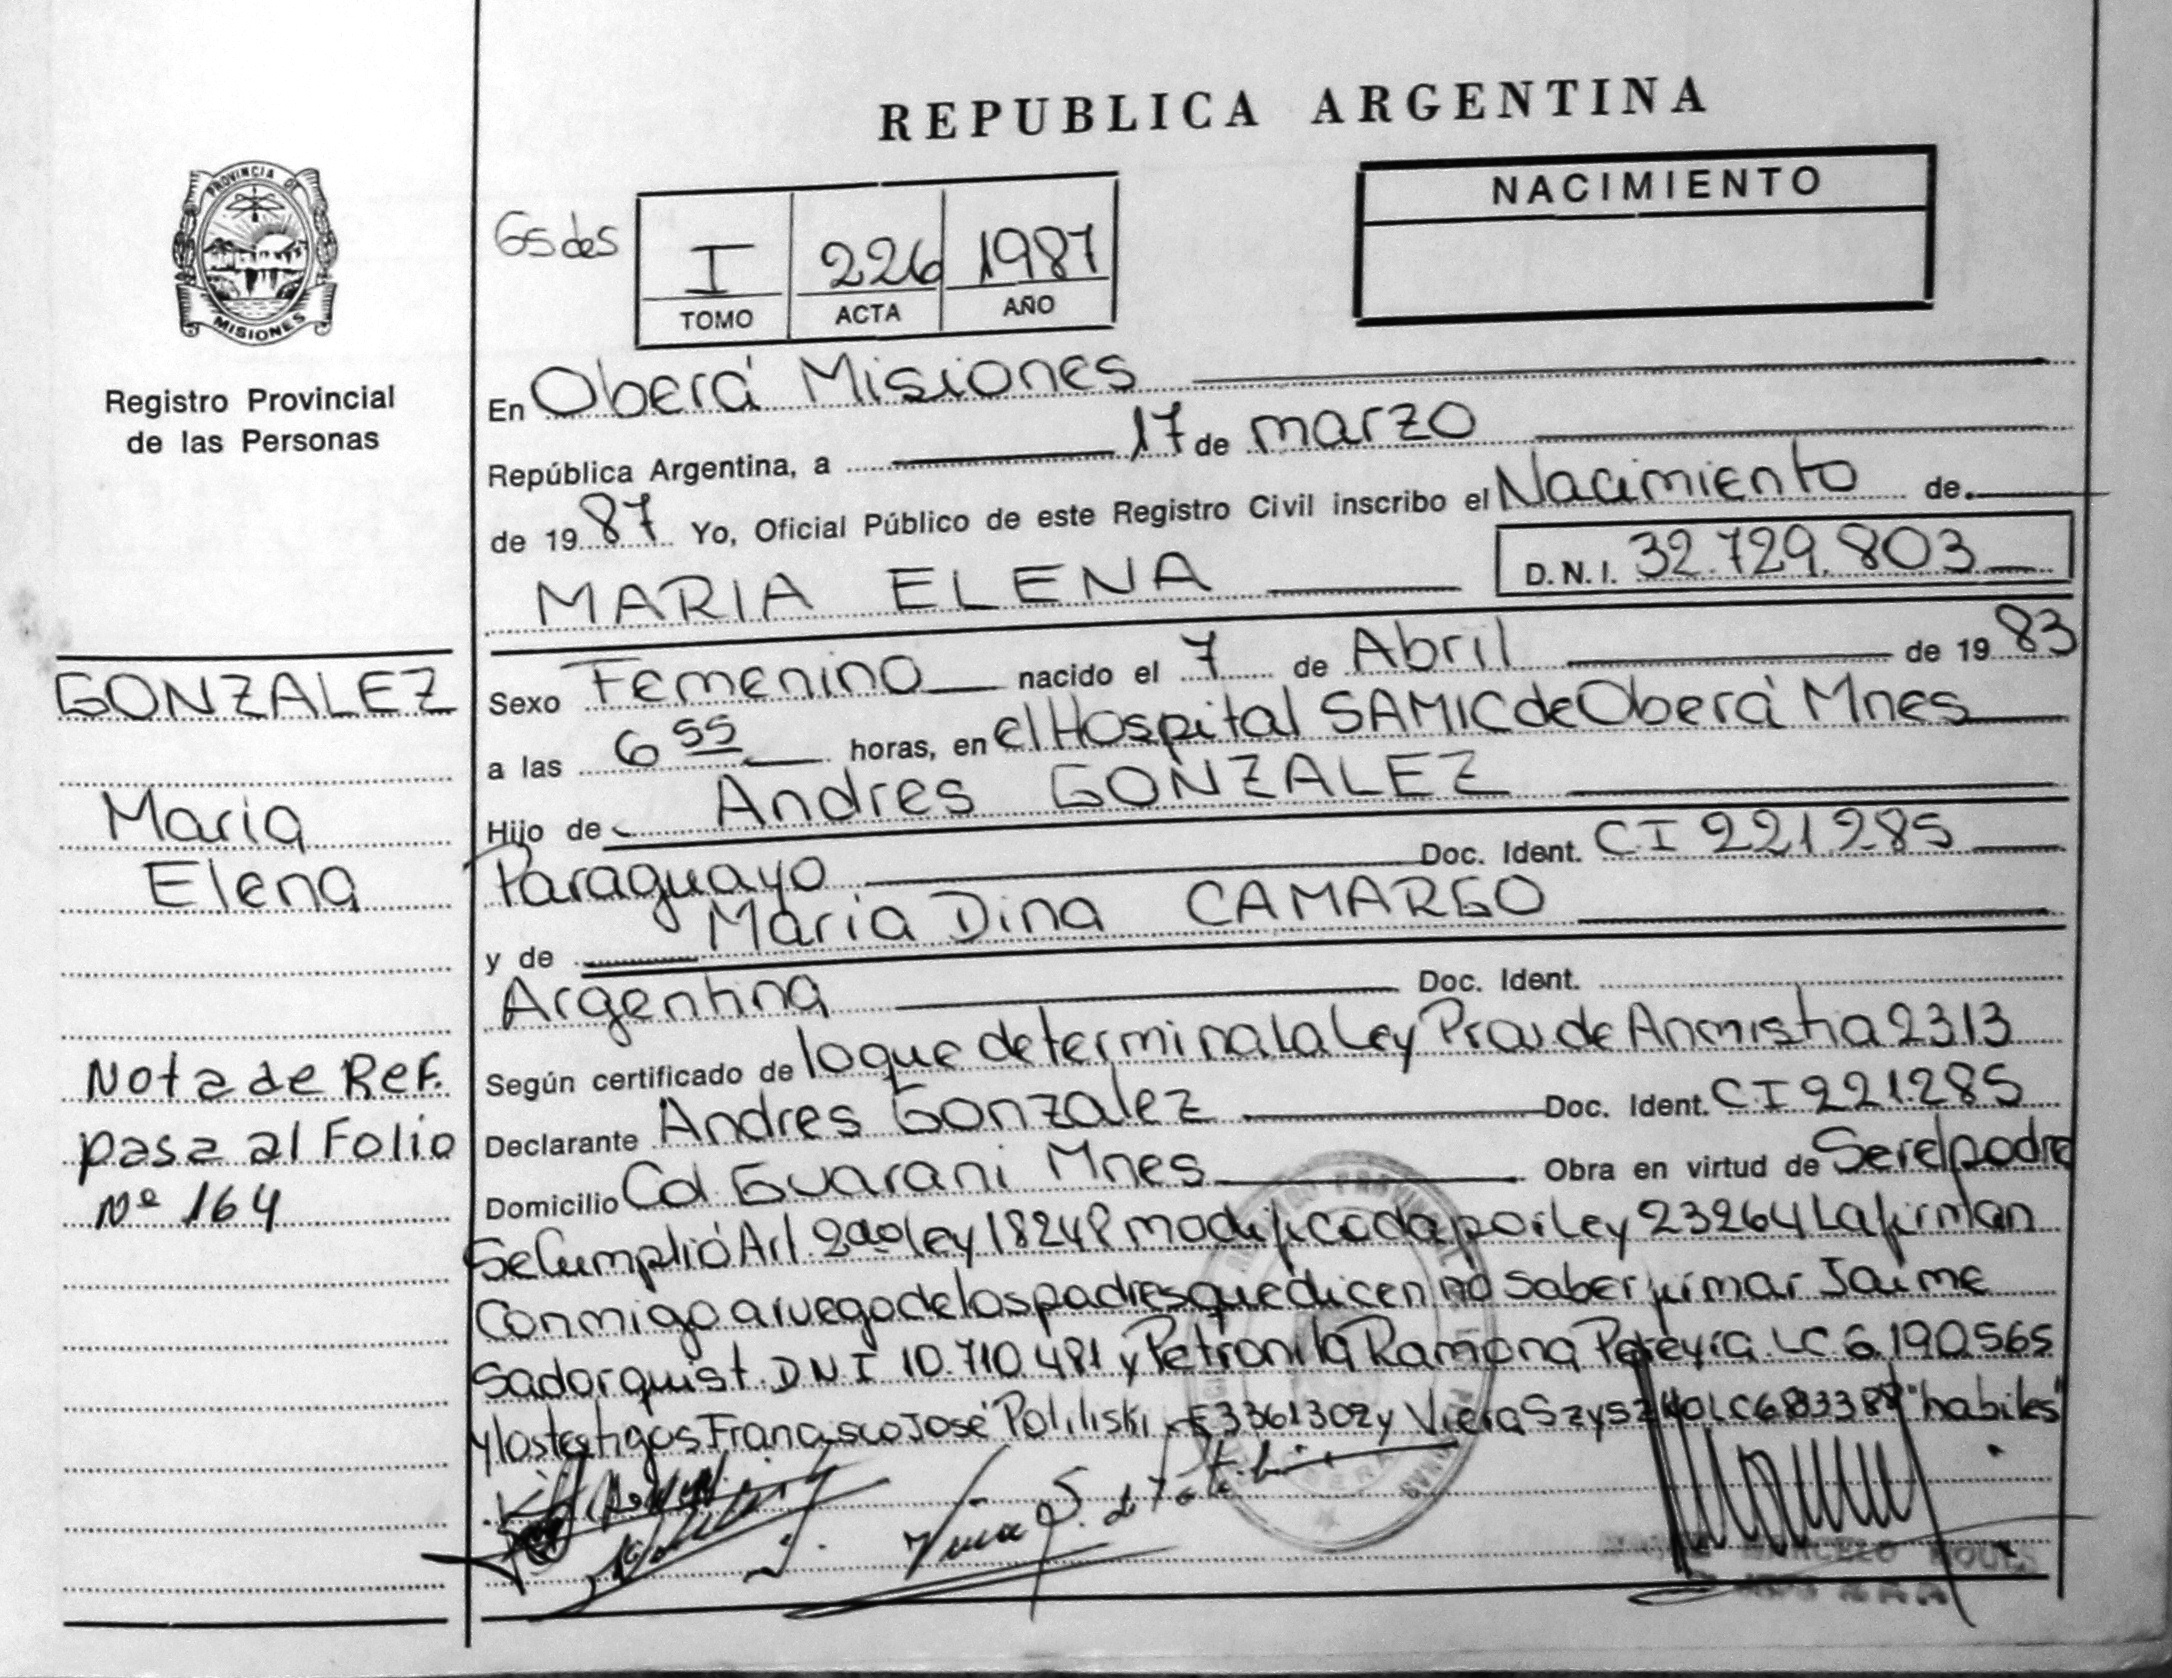 REPUBLICA ARGENTINA
PROVINCIA DE
MISIONES
Registro Provincial
de las Personas
NACIMIENTO
Gsdes
I 226 1987
TOMO ACTA AÑO
En Oberá Misiones
República Argentina, a 17 de marzo
de 1987 Yo, Oficial Público de este Registro Civil inscribo el Nacimiento de
MARIA ELENA D.N.I. 32.729.803
GONZALEZ
Maria
Elena
Nota de Ref.
pasa al Folio
Nº 164
Sexo Femenino nacido el 7 de Abril de 1983
a las 6 55 horas, en el Hospital SAMIC de Oberá Mnes
Hijo de Andres GONZALEZ
Paraguayo Doc. Ident. CI 221.285
y de Maria Dina CAMARGO
Argentina Doc. Ident.
Según certificado de lo que determina la Ley Prov de Anmistia 2313
Declarante Andres Gonzalez Doc. Ident. CI 221.285
Domicilio Col Guarani Mnes Obra en virtud de Ser el padre
Se Cumplió Art 2do ley 18248 modificada por Ley 23264 La firman
Conmigo a ruego de los padres que dicen no saber firmar Jaime
Sadorquist DNI 10.710.481 y Petronila Ramona Pereyra LC 6.190.565
y los testigos Francisco José Poliliski 3361302 y Viera
"habiles"
MARCELO